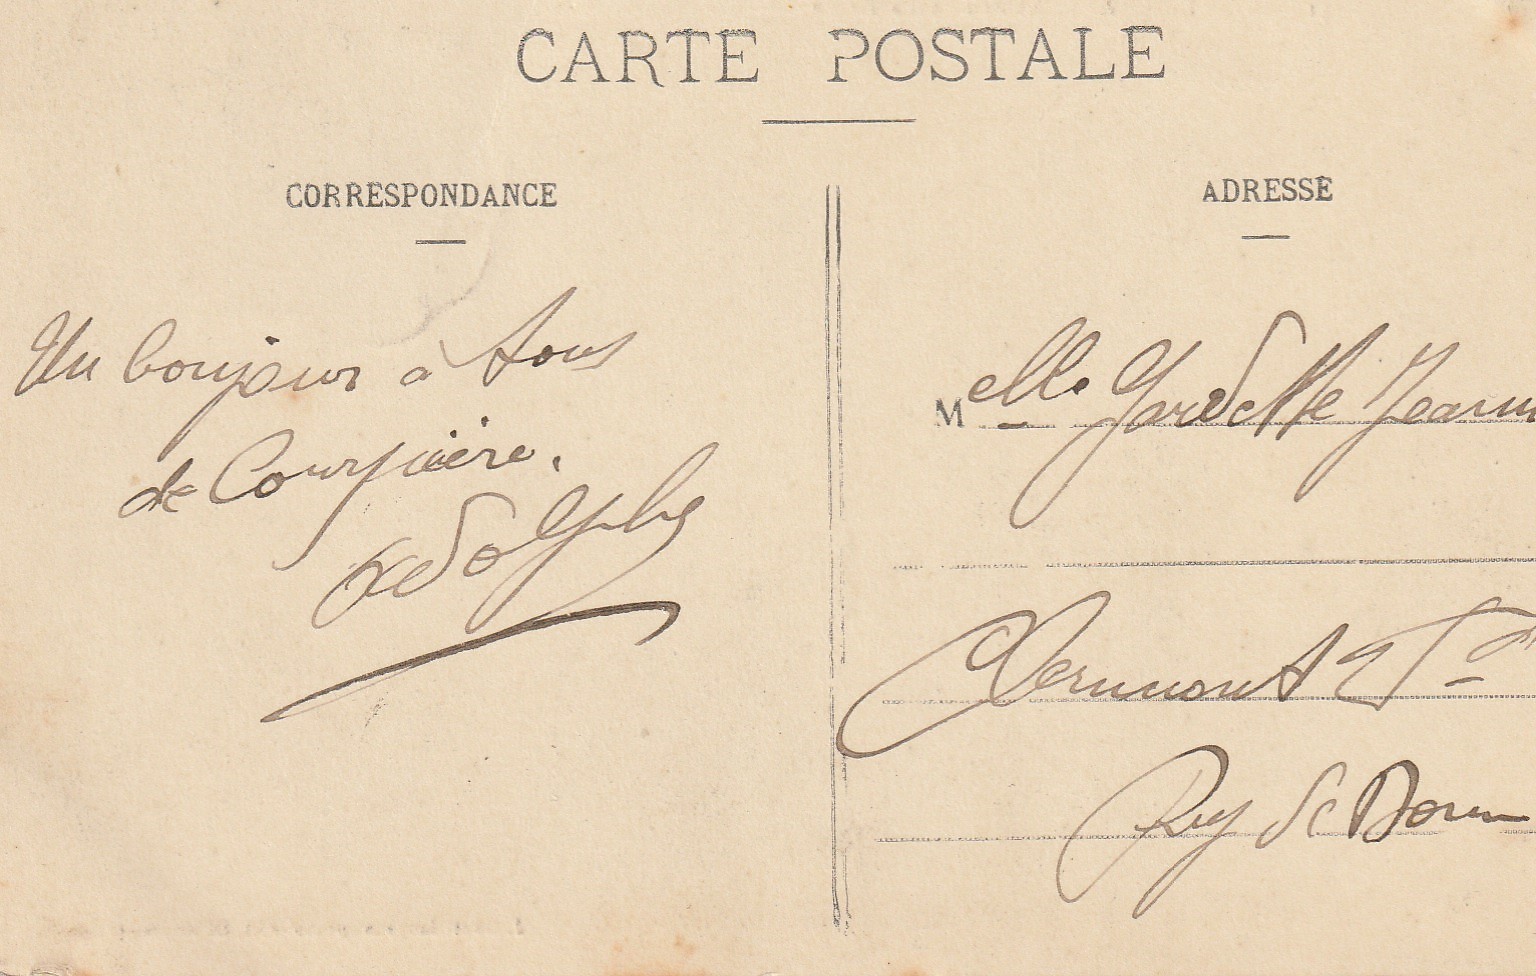 CARTE POSTALE
CORRESPONDANCE
Un bonjour à tous
de Courpière.
Adolphe
ADRESSE
Melle Gardette Jeann
Clermont
Puy de Dom